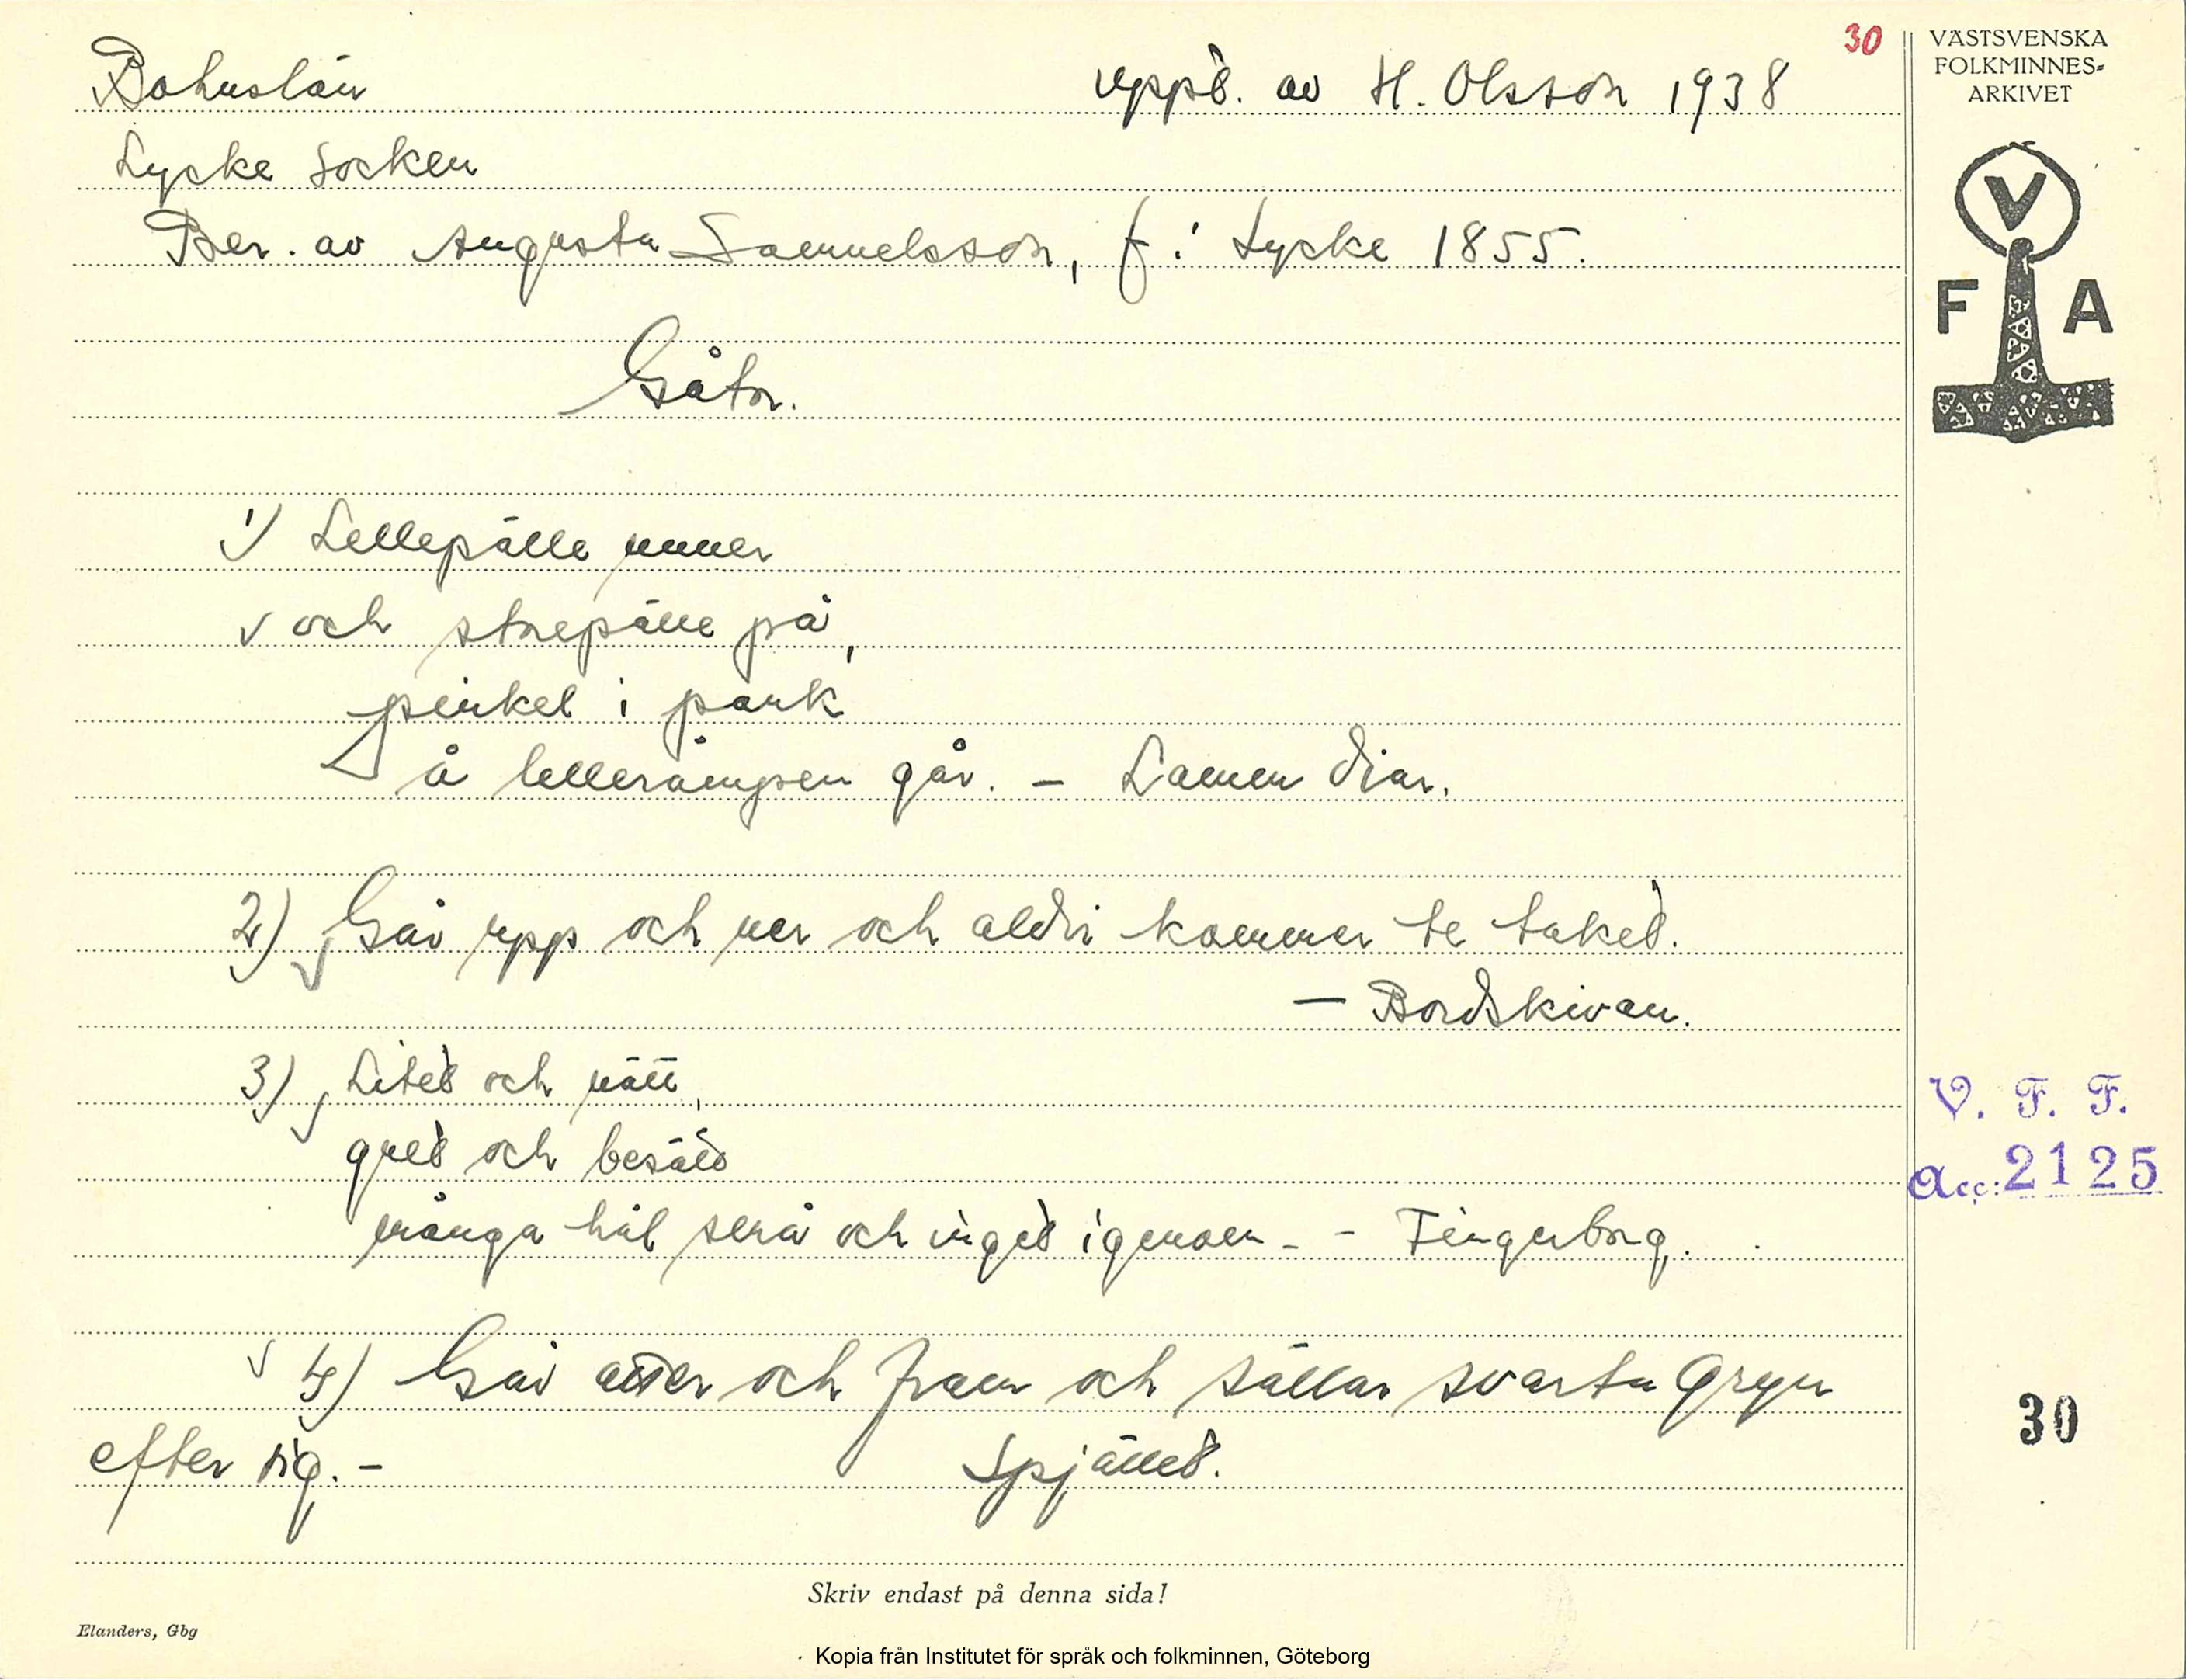 30
VÄSTSVENSKA
FOLKMINNES=
ARKIVET
Bohuslän
uppt. av H. Olsson 1938
Lycke socken
Ber. av Augusta Samuelsson, f. i Lycke 1855.
V
F A
Gåtor.
1) Lellepälle unner
och storepälle på,
pinkel i pank
å lellerumpen går. - Lamm diar.
2) Går upp och ner och aldri kommer te taket.
- Bordskivan.
3) Litet och nätt,
gult och besått
många hål små och inget igenom. - Fingerborg.
V. F. F.
Acc: 2125
4) Går atter och fram och sållar svarta gryn
efter sig. - Spjället.
30
Skriv endast på denna sida!
Elanders, Gbg
Kopia från Institutet för språk och folkminnen, Göteborg